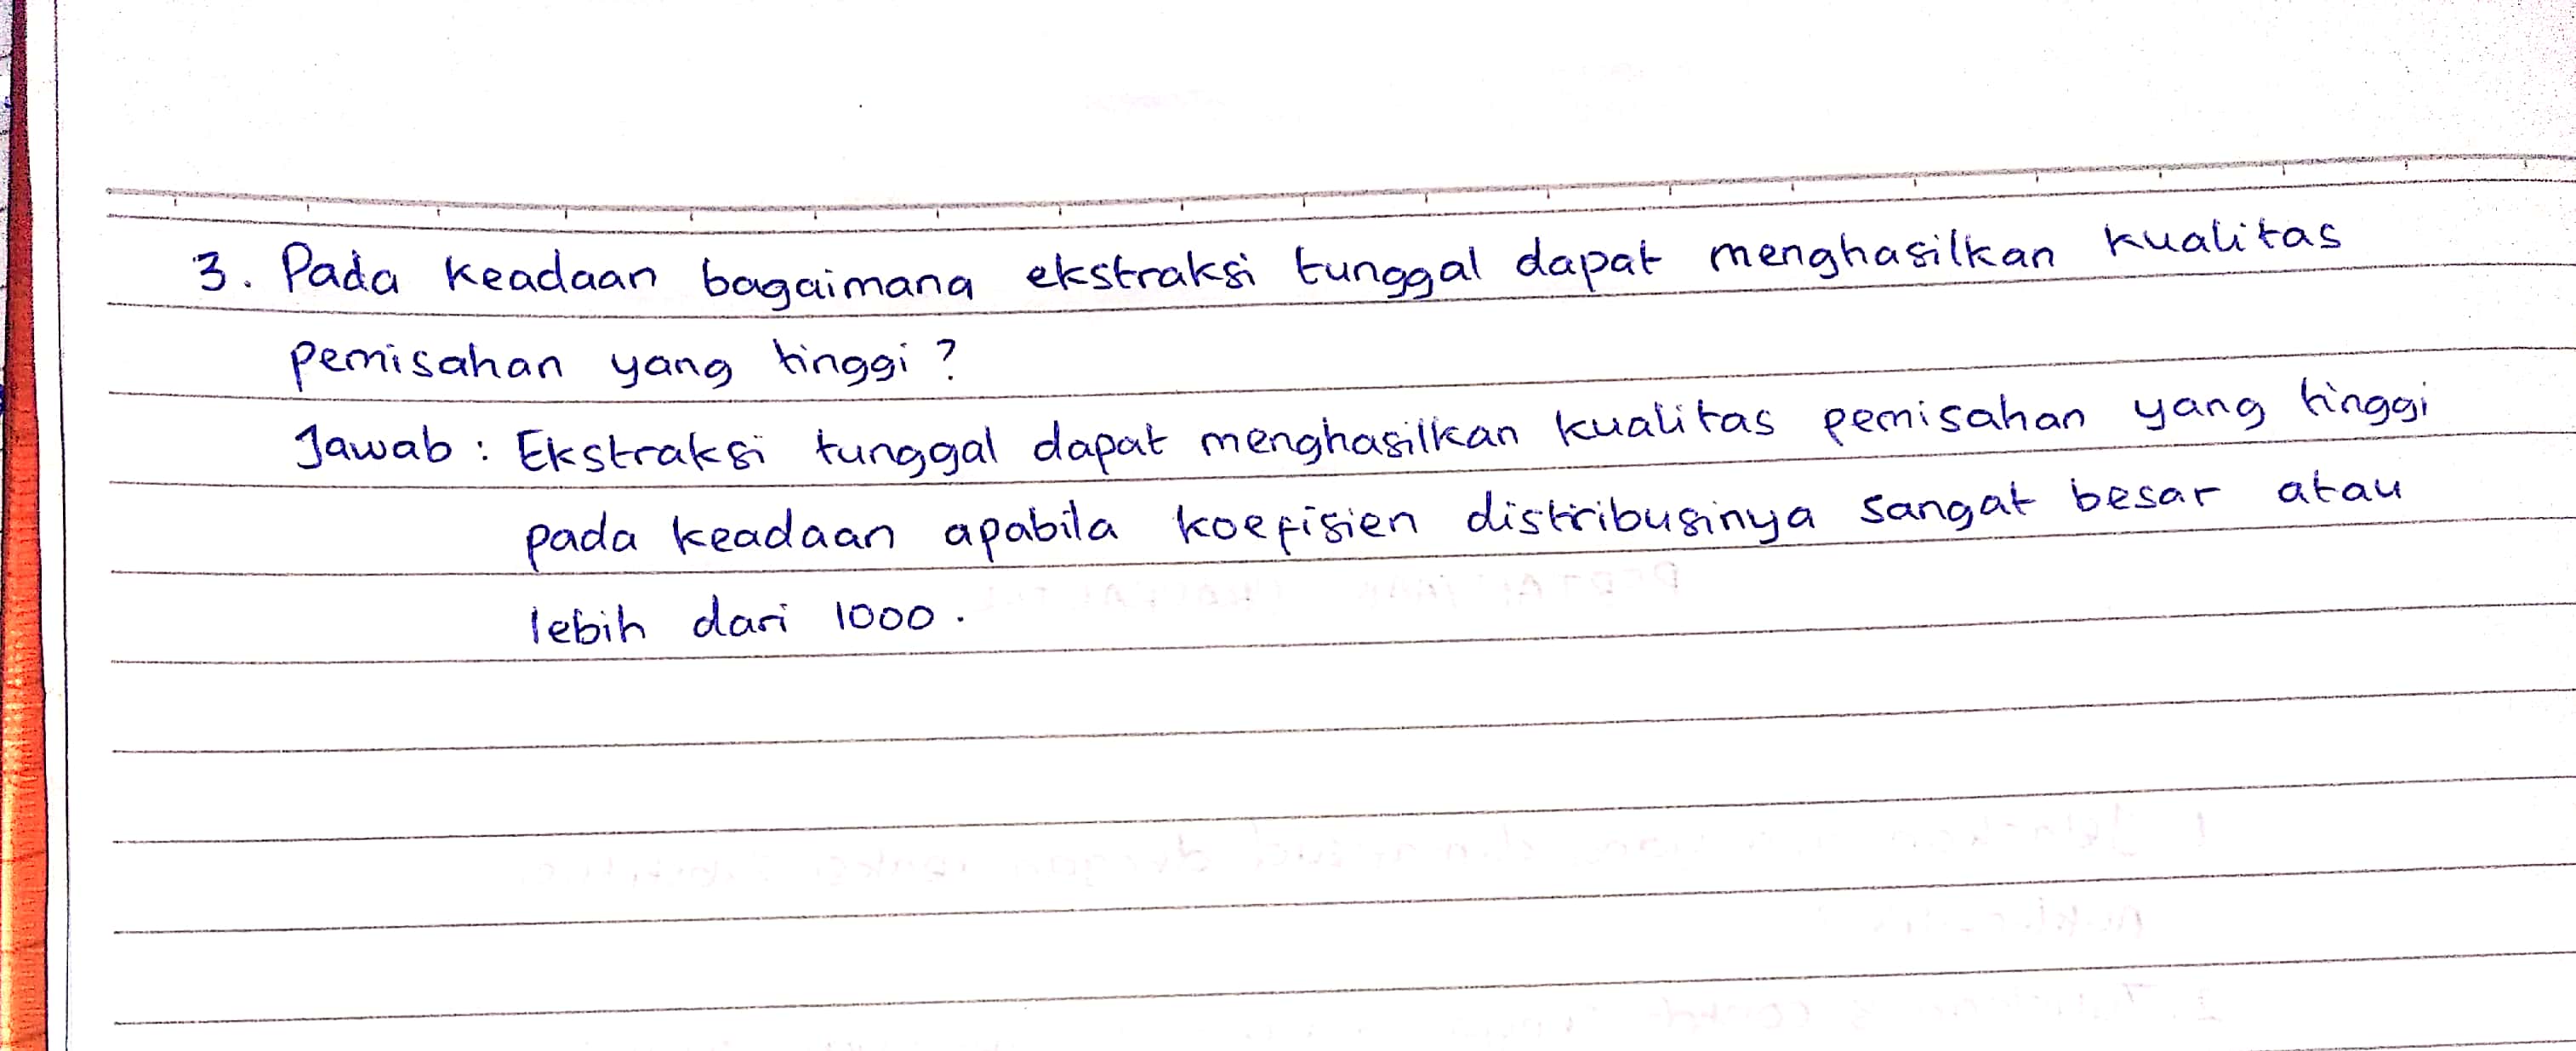 3. Pada keadaan bagaimana ekstraksi tunggal dapat menghasilkan kualitas
pemisahan yang tinggi ?
Jawab : Ekstraksi tunggal dapat menghasilkan kualitas pemisahan yang tinggi
pada keadaan apabila koefisien distribusinya sangat besar atau
lebih dari 1000.